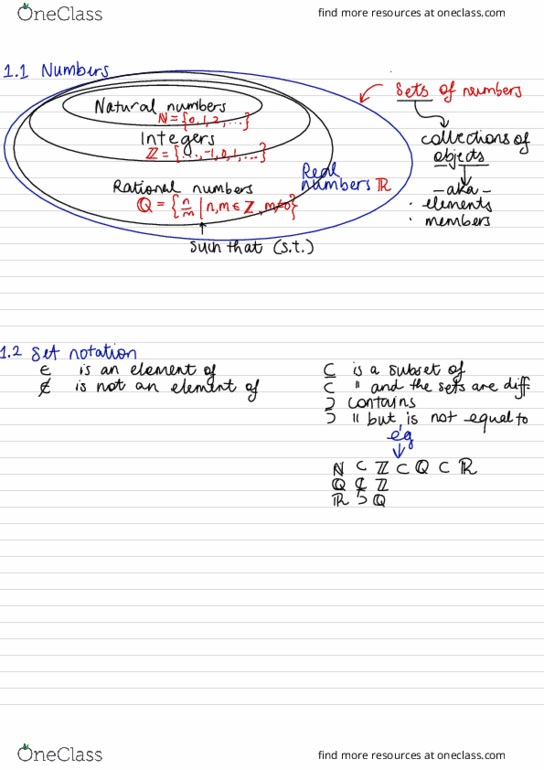 OneClass find more resources at oneclass.com
1.1 Numbers
Sets of numbers
Natural numbers
ℕ = {0, 1, 2, ...}
Integers
ℤ = {..., -1, 0, 1, ...}
Rational numbers
ℚ = {n/m | n, m ∈ ℤ, m≠0}
Real
numbers ℝ
such that (s.t.)
collections of
objects
- aka -
· elements
· members
1.2 Set notation
∈ is an element of
∉ is not an element of
⊆ is a subset of
⊂ " and the sets are diff
⊇ contains
⊃ " but is not equal to
eg
ℕ ⊂ ℤ ⊂ ℚ ⊂ ℝ
ℚ ⊄ ℤ
ℝ ⊃ ℚ
OneClass find more resources at oneclass.com